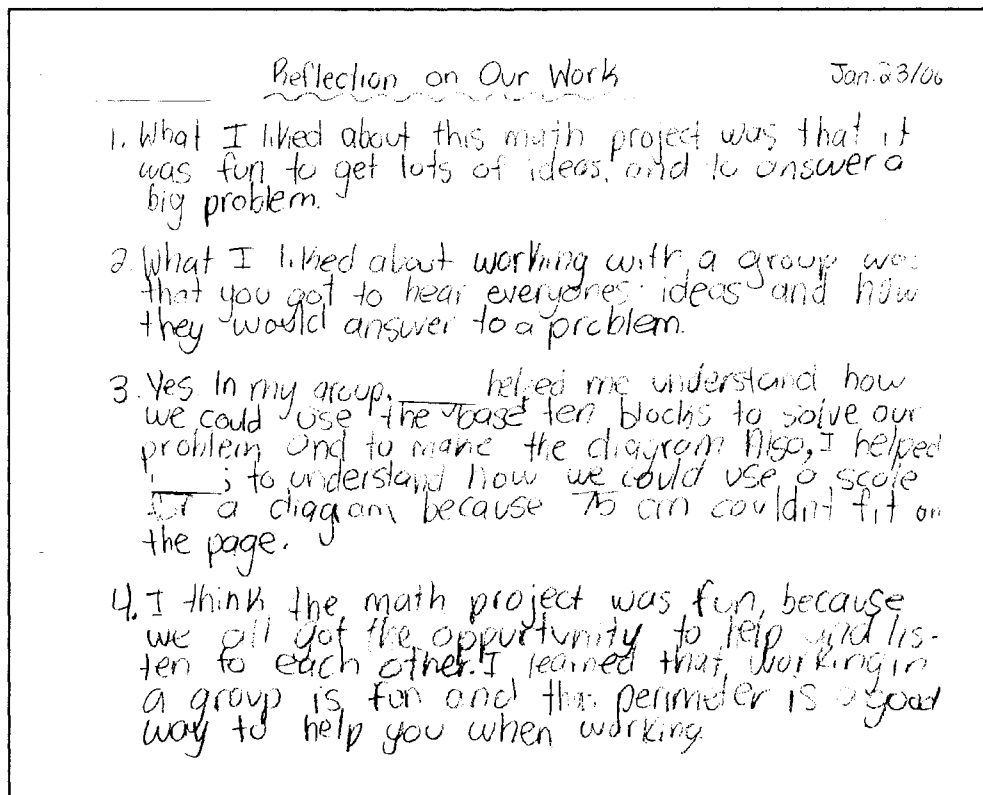 Reflection on Our Work Jan. 23/06
1. What I liked about this math project was that it
was fun to get lots of ideas, and to answer a
big problem.
2. What I liked about working with a group was
that you got to hear everyones ideas and how
they would answer to a problem.
3. Yes. In my group, ____ helped me understand how
we could use the base ten blocks to solve our
problem and to make the diagram Also, I helped
____ to understand how we could use a scale
for a diagram because 75 cm couldnt fit on
the page.
4. I think the math project was fun, because
we all got the oppurtunity to help and lis-
ten to each other. I learned that working in
a group is fun and that perimeter is a good
way to help you when working.